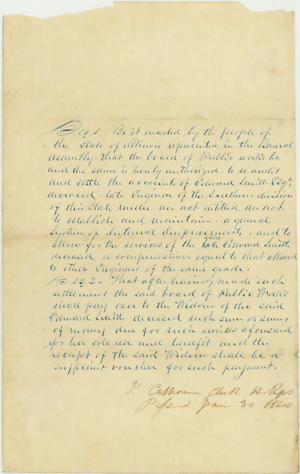 Sec 1 Be it enacted by the people of
the State of Illinois represented in the General
Assembly, that the board of Public works be
and the same is hereby authorized to re audit
and settle the accounts of Edward Smith Esqr
deceased late Engineer of the Southern division
of this State under an act entitled an act
to establish and maintain a general
system of internal improvements, and to
allow for the services of the late Edward Smith
deceased a compensation equal to that allowed
to other Engineers of the same grade.
Sec 2 That after having made such
settlement the said board of Public Works
shall pay over to the Widow of the said
Edward Smith deceased such sum or sums
of money due for such services aforesaid
for her sole use and benefit and the
receipt of the said Widow shall be a
sufficient voucher for such payment.
J. Calhoun Clerk H Reps
Passed Jan 30 1840